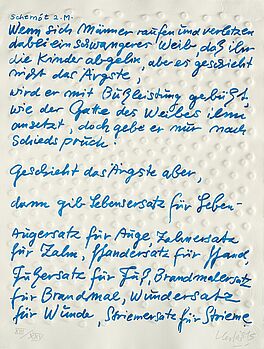 Schemót 2.M.
Wenn sich Männer raufen und verletzen
dabei ein schwangeres Weib, daß ihr
die Kinder abgehn, aber es geschieht
nicht das Ärgste,
wird er mit Bußleistung gebüßt,
wie der Gatte des Weibes ihm
ansetzt, doch gebe er nur nach
Schiedspruch!
Geschieht das Ärgste aber,
dann gib Lebensersatz für Leben-
Augersatz für Auge, Zahnersatz
für Zahn, Handersatz für Hand,
Fußersatz für Fuß, Brandmalersatz
für Brandmal, Wundersatz
für Wunde, Striemersatz für Strieme
XIII/XXV